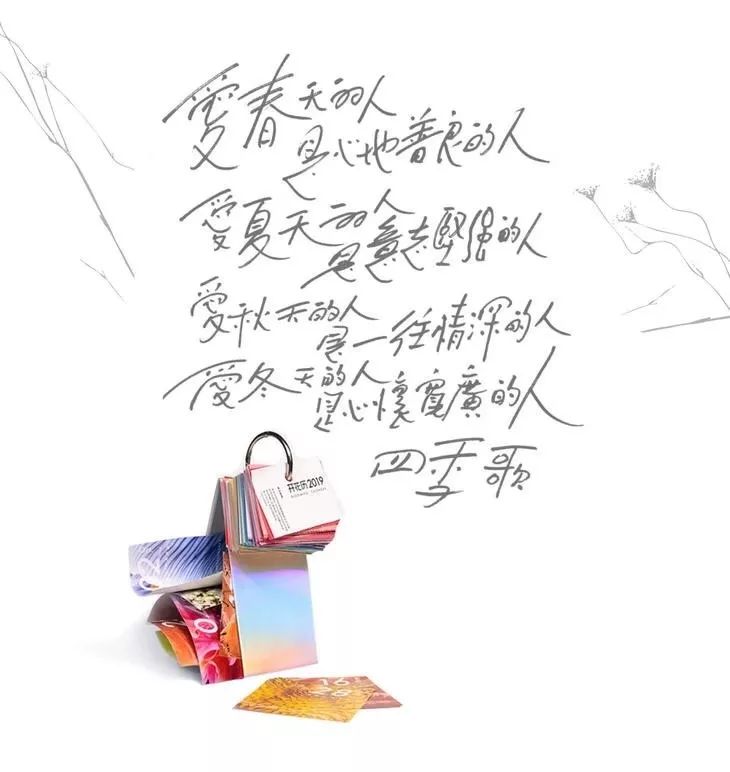 愛春天的人
是心地善良的人
愛夏天的人
是意志堅强的人
愛秋天的人
是一往情深的人
愛冬天的人
是心懷寬廣的人
四季歌
开花历2019
16
28